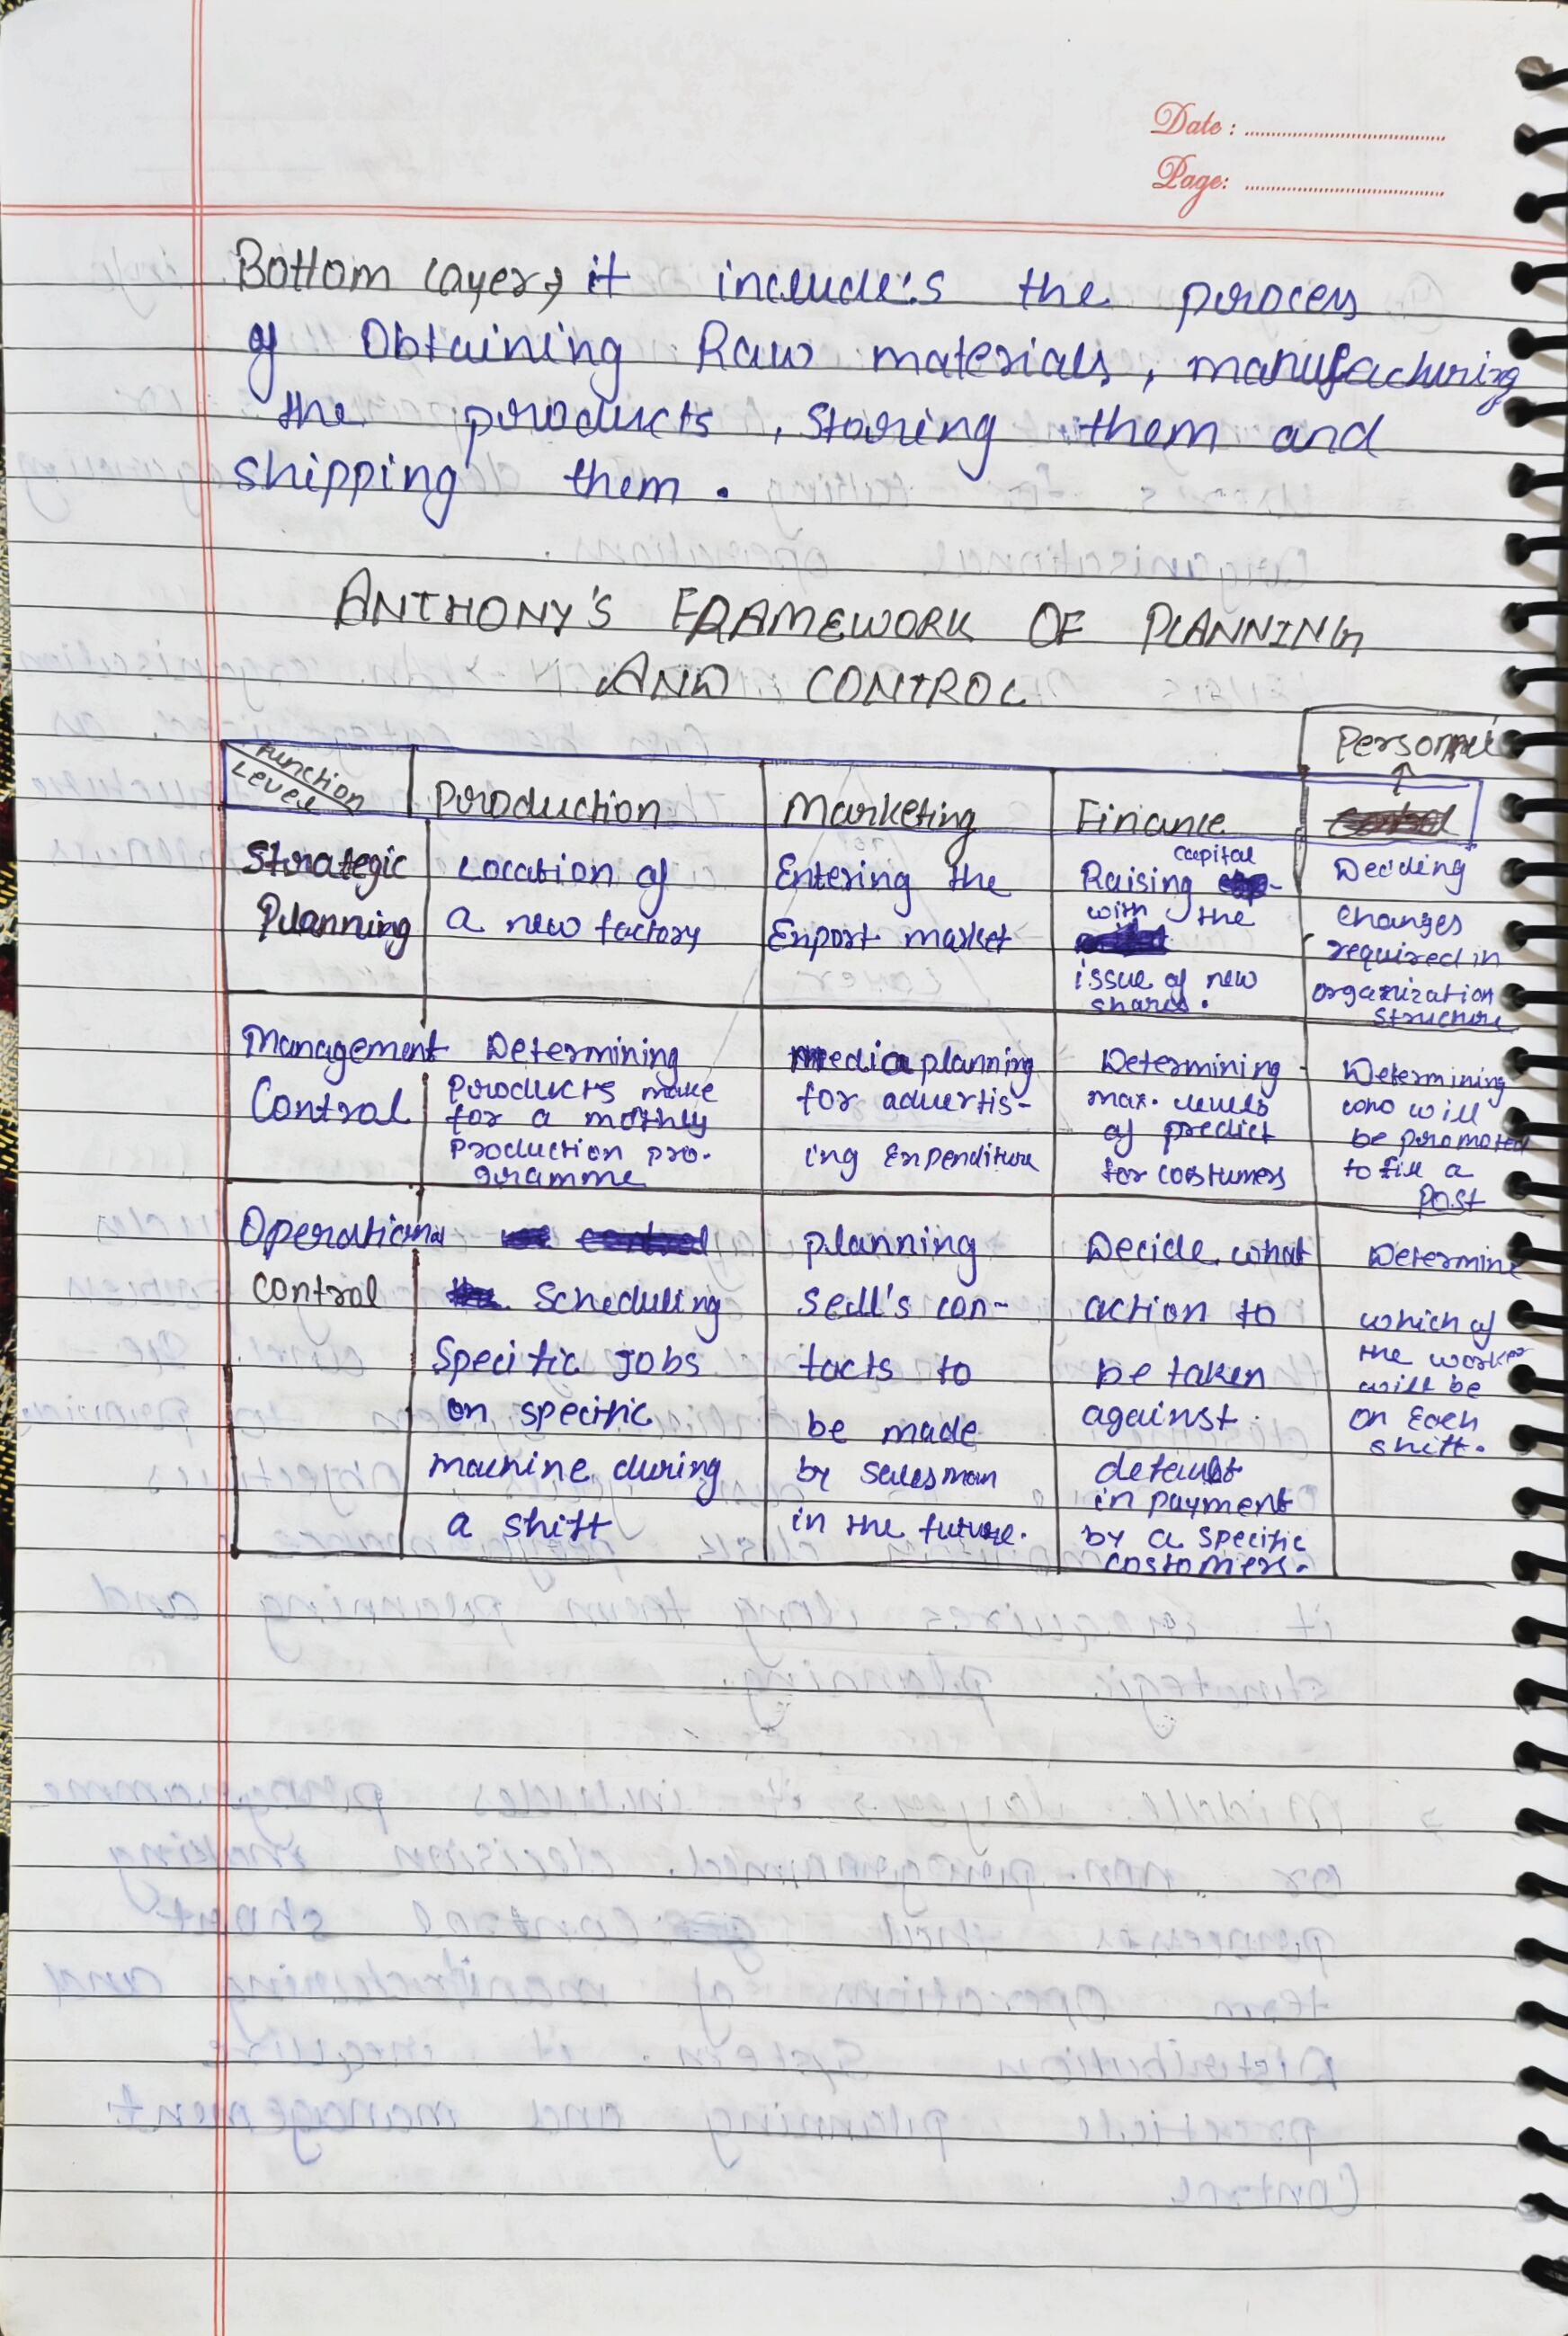 Date :
Page:
Bottom layer, it include's the process
of Obtaining Raw materials, manufacturing
the products, Storing them and
shipping them.
ANTHONY'S FRAMEWORK OF PLANNING
AND CONTROL
Personnel
Function
Level
Production
Marketing
Finance
Strategic
Planning
Location of
a new factory
Entering the
Export market
Raising capital
with the
issue of new
shares.
Deciding
changes
required in
organization
structure
Management
Control
Determining
Products make
for a mothly
Production pro-
gramme
Media planning
for advertis-
ing Expenditure
Determining
max. levels
of predict
for costumers
Determining
who will
be promoted
to fill a
post
Operational
control
Scheduling
Specific Jobs
on specific
machine during
a shift
planning
Sell's con-
tacts to
be made
by salesman
in the future.
Decide what
action to
be taken
against
default
in payment
by a specific
costomers.
Determine
which of
the worker
will be
on Each
shift.